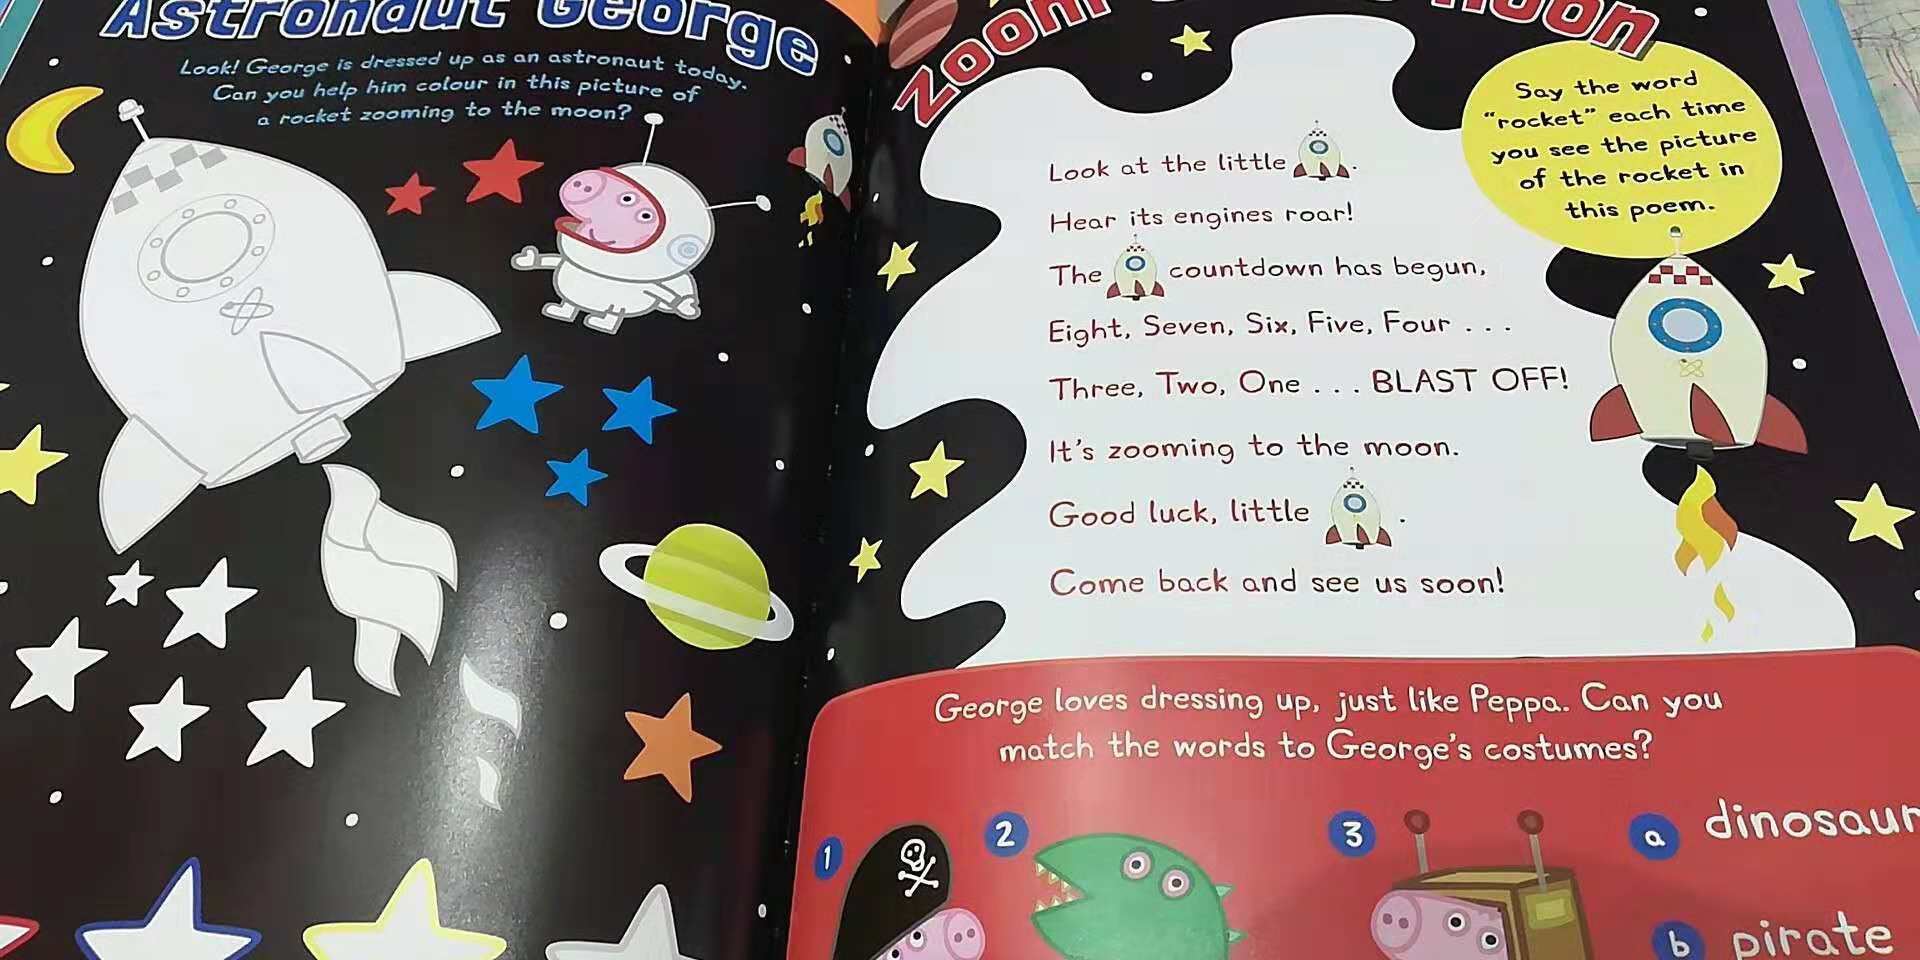 Astronaut George
Look! George is dressed up as an astronaut today.
Can you help him colour in this picture of
a rocket zooming to the moon?
Zoom moon
Say the word
“rocket” each time
you see the picture
of the rocket in
this poem.
Look at the little .
Hear its engines roar!
The countdown has begun,
Eight, Seven, Six, Five, Four . . .
Three, Two, One . . . BLAST OFF!
It’s zooming to the moon.
Good luck, little .
Come back and see us soon!
George loves dressing up, just like Peppa. Can you
match the words to George’s costumes?
1
2
3
a dinosaur
b pirate